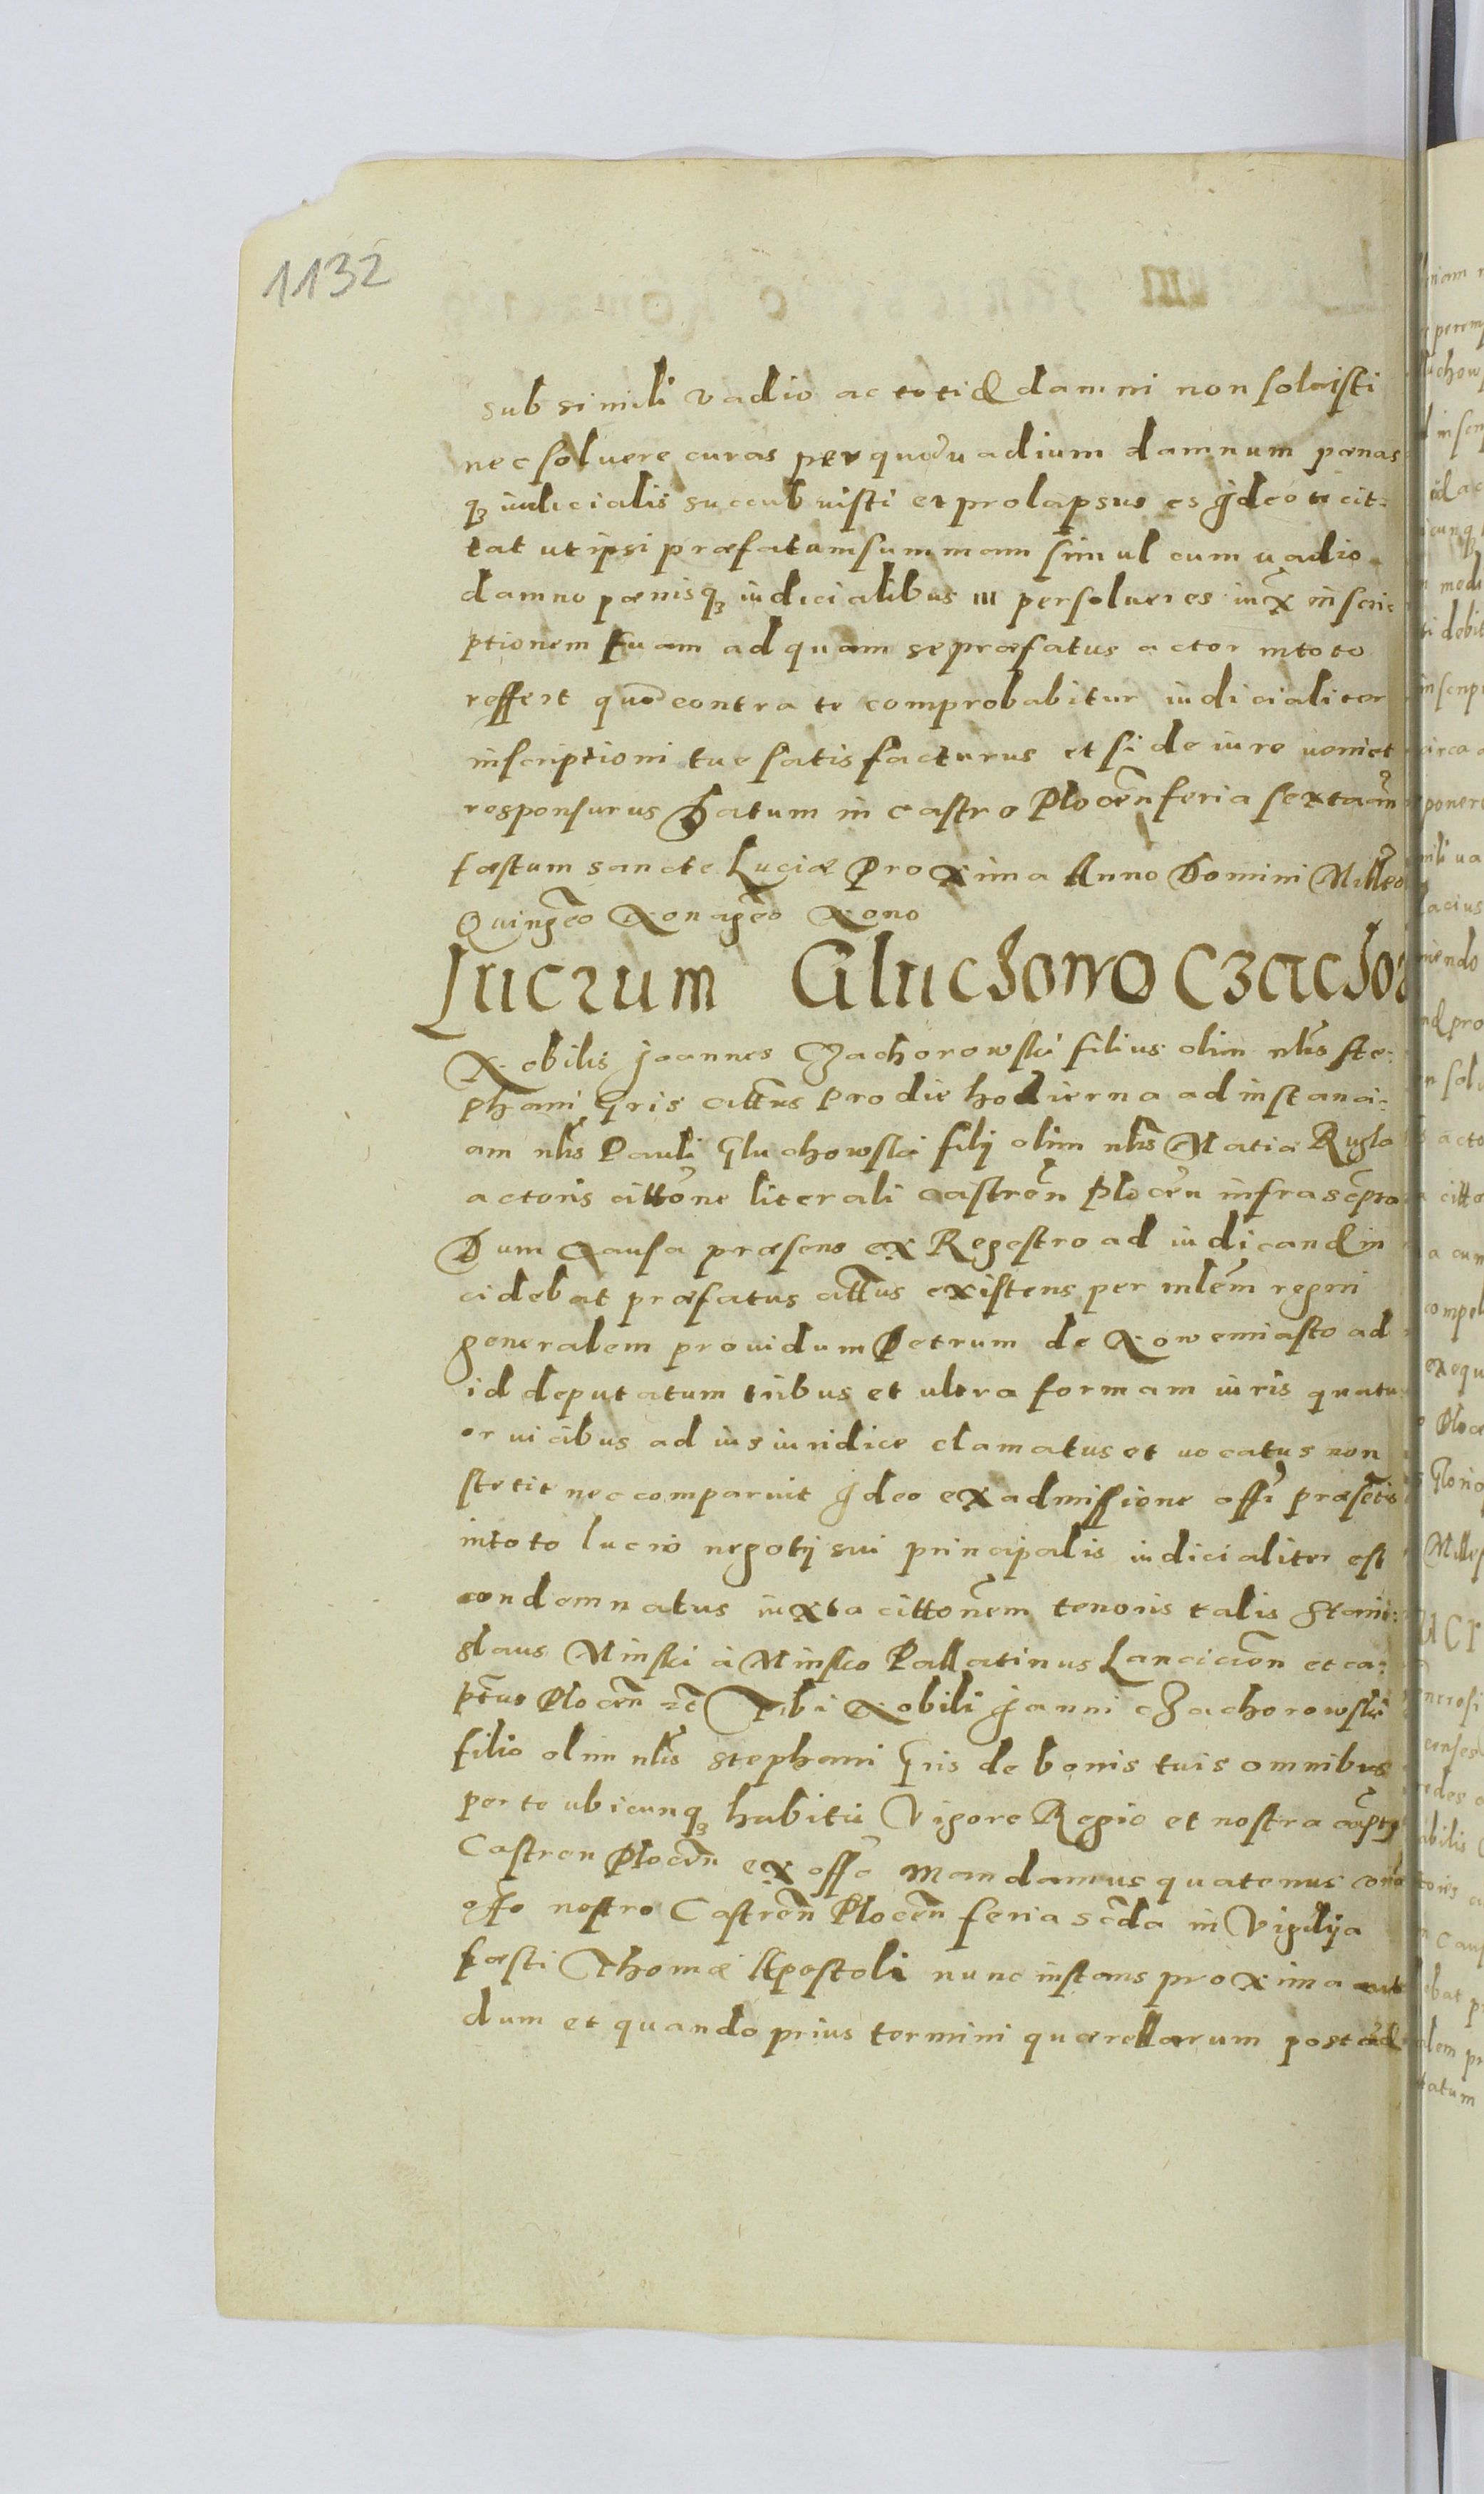 1132
sub simili vadio ac totid damni non soluisti
nec soluere curas per quod uadium damnum pœnas
q3 iudicialis succubuisti et prolapsus es Jdeo te cit:
tat ut ipsi præfatam summam simul cum uadio
damno pœnisq3 iudicialibus III persolueres iux inscri:
ptionem tuam ad quam se præfatus actor in toto
reffert quo contra te comprobabitur iudicialiter
inscriptioni tue satisfacturus et si de iure ueniet
responsurus Datum in castro Plocen feria sexta an
fæstum sancte Luciæ Proxima Anno Domini Milleo
Quingeo Nonageo Nono
Lucrum Gluchowo Czachor
Nobilis Joannes Czachorowski filius olim nlis Ste:
phani Gris cittus pro die hodierna ad instanci:
am nlis Pauli Gluchowski filij olim nlis Matiæ Rugla
actoris cittone literali castren Plocen infrascpta
Dum Causa præsens ex Regestro ad iudicand in
cidebat præfatus cittus existens per mlem regni
generalem prouidum Petrum de Nowemiasto ad
id deputatum tribus et ultra formam iuris quatu
or uicibus ad ius iuridice clamatus et uocatus non
stetit nec comparuit Jdeo ex admissione offi præsetis
in toto lucro negotij sui principalis iudicialiter est
condemnatus iuxta cittonem tenoris talis Stani:
slaus Minski à Minsko Pallatinus Lancicien et ca:
pteus Plocen etc Tibi Nobili Janni Czachorowski
filio olim nlis Stephani Gris de bonis tuis omnibus
per te ubicunq3 habitis Vigore Regio et nostra capta
Castren Plocen ex offo mandamus quatenus cora
offo nostro Castren Plocen feria scda in Vigilija
fæsti Thomæ Apostoli nunc instans proxima aut
dum et quando prius termini quærellarum post ad